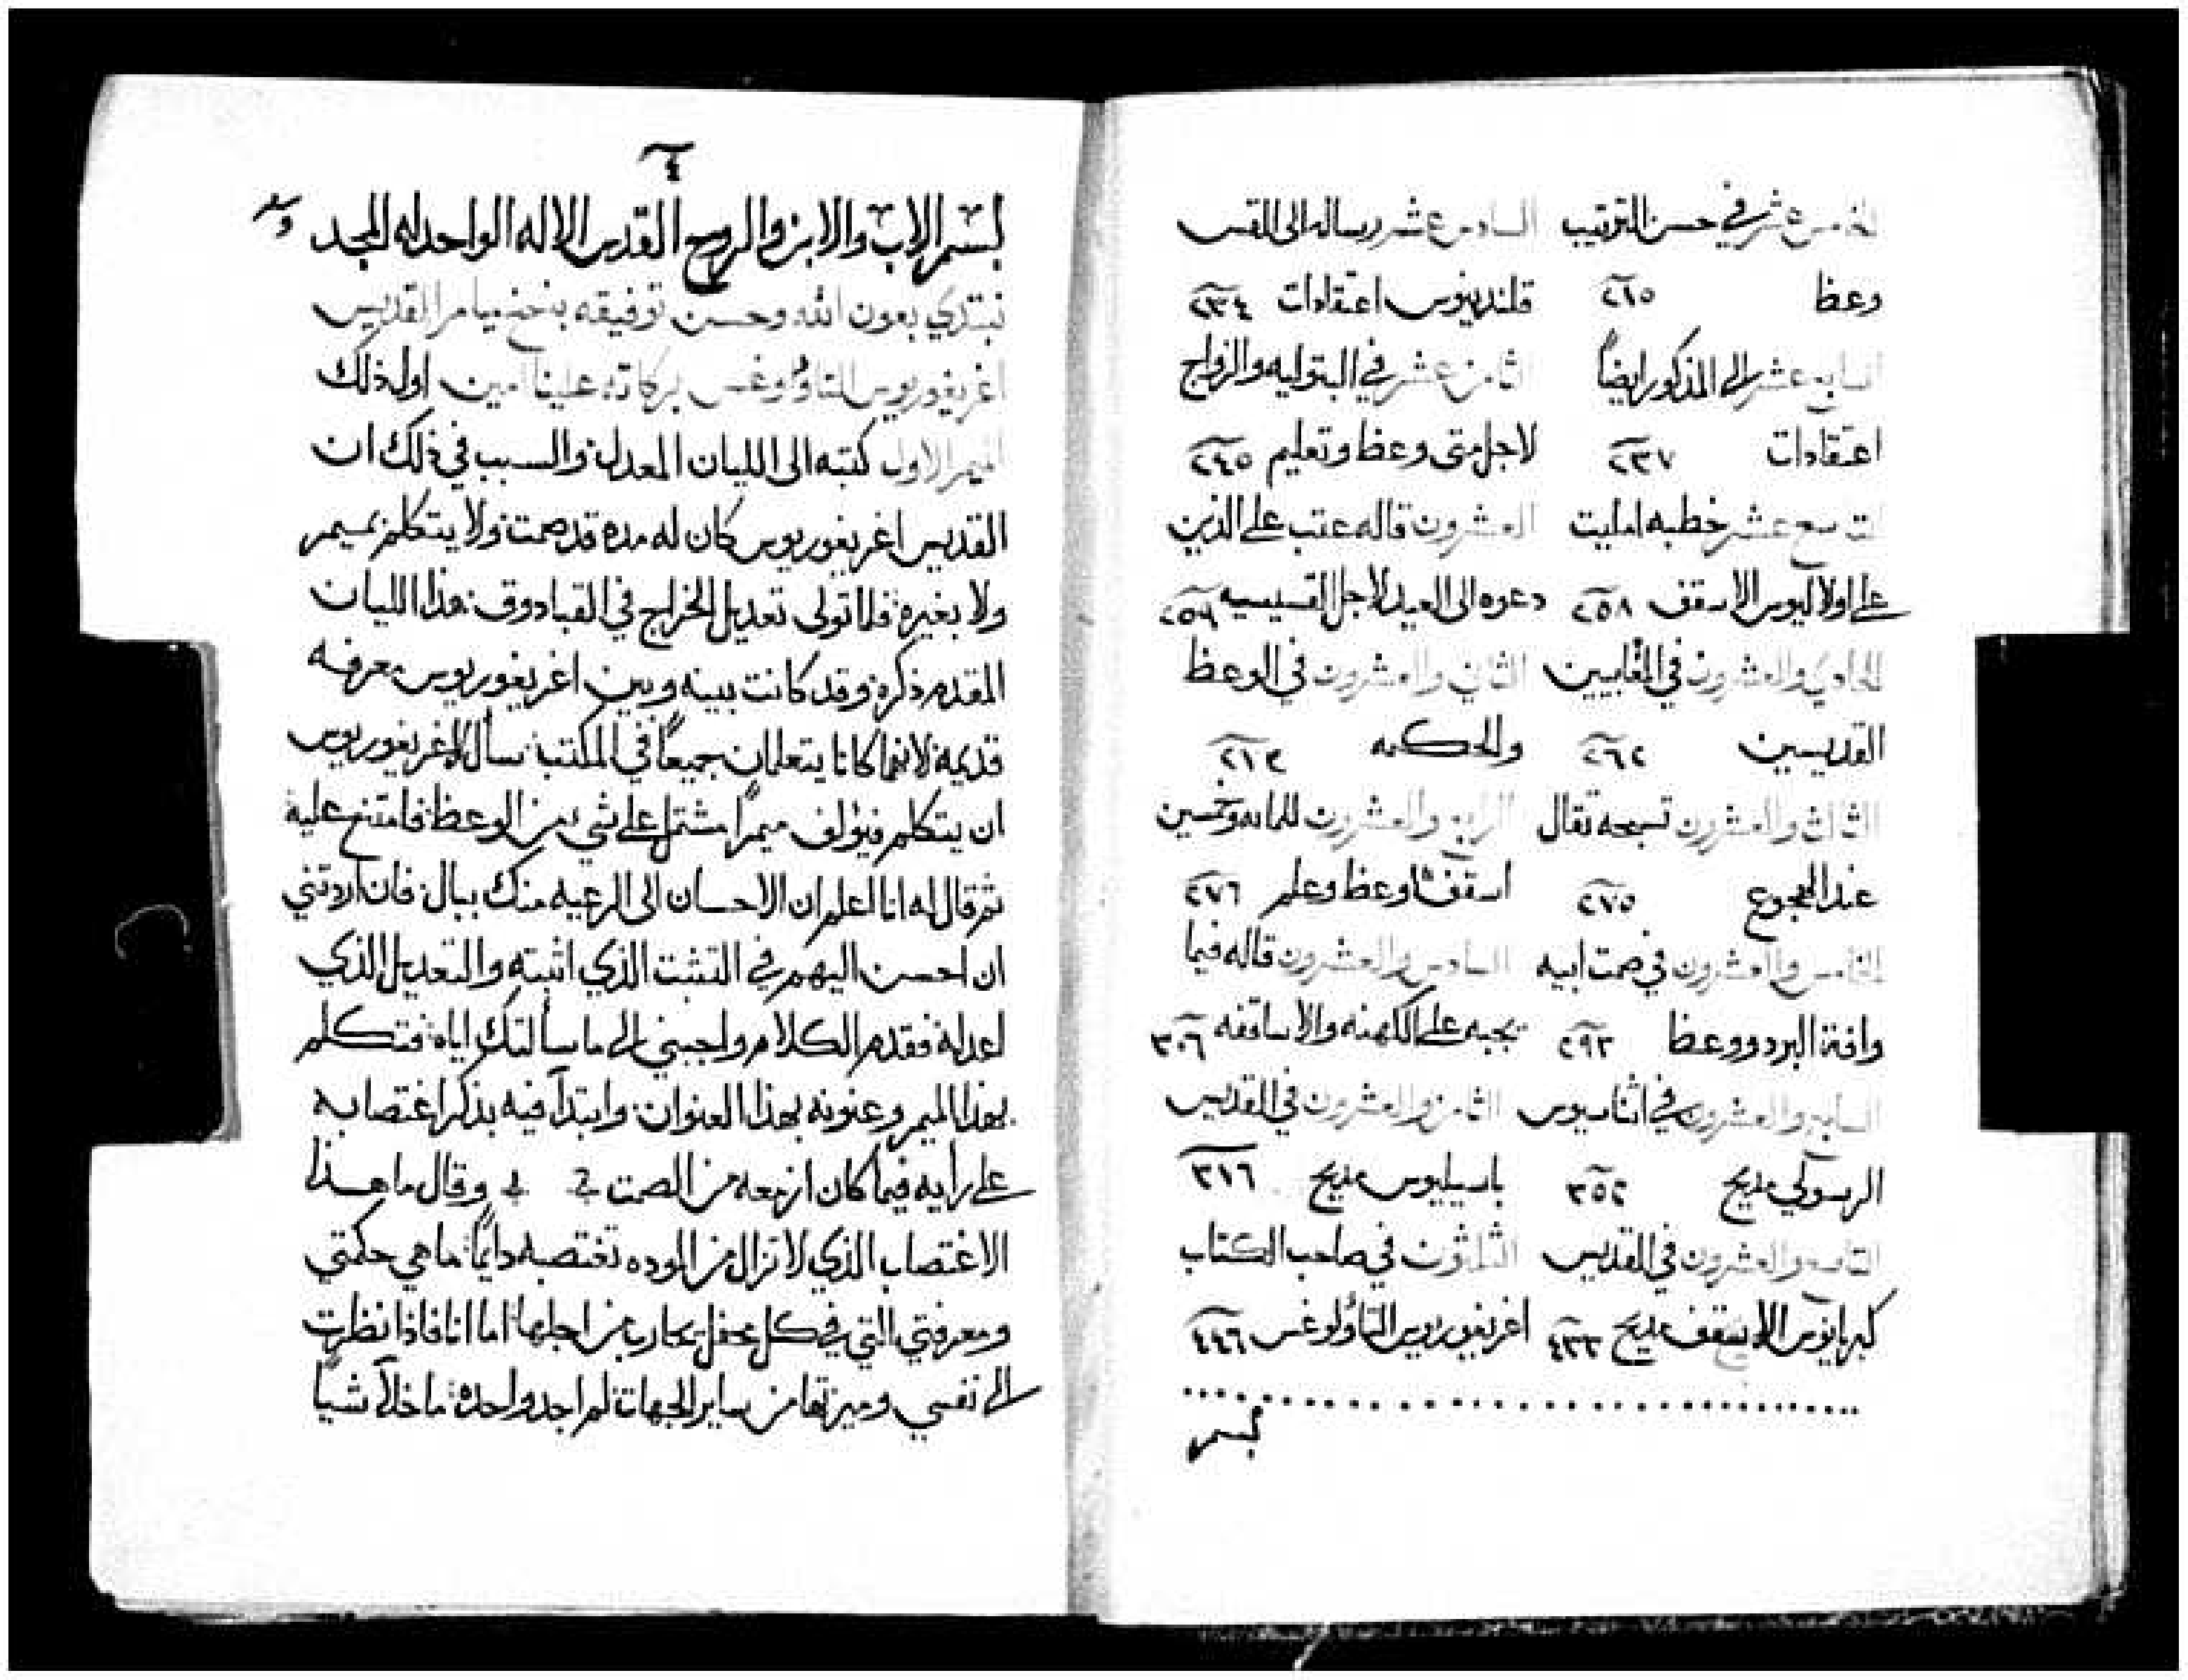 الخامس عشر في حسن الترتيب السادس عشر رساله الى القس
وعظ ٢٦٥ قلندينوس اعتقادات ٢٣٤
السابع عشر الى المذكور ايضاً الثامن عشر في البتوليه والزواج
اعتقادات ٢٣٧ لاجل متى وعظ وتعليم ٢٤٥
التاسع عشر خطبه امليت العشرون قاله عتب على الذين
على اولاليوس الاسقف ٢٥٨ دعوه الى العيد لاجل القسيسيه
الحادي والعشرون في المقابيين الثاني والعشرون في الوعظ
القديسين ٢٦٢ والحكمه
الثالث والعشرون تسبحه تقال الرابع والعشرون للمايه وخمسين
عند الهجوع ٢٧٥ اسقفا وعظ وعلم ٢٧٦
الخامس والعشرون في صمت ابيه السادس والعشرون قاله فيما
وافة البرد ووعظ ٢٩٣ يجبه على الكهنه والاساقفه ٣٠٦
السابع والعشرون في اثناسيوس الثامن والعشرون في القديس
الرسولي مديح ٣٥٢ باسيليوس مديح ٣٧٦
التاسع والعشرون في القديس الثلثون في صاحب الكتاب
كبريانوس الاسقف مديح ٤٣٣ اغريغوريوس الثاولوغس ٤٤٦
بسم
٤
بسم الاب والابن والروح القدس الاله الواحد له المجد
نبتدي بعون الله وحسن توفيقه بنسخ ميامر القديس
اغريغوريوس الثاولوغس بركاته علينا امين اول ذلك
الميمر الاول كتبه الى الليان المعدل والسبب في ذلك ان
القديس اغريغوريوس كان له مده قد صمت ولا يتكلم بميمر
ولا بغيره فلما تولى تعديل الخراج في القبادوق هذا الليان
المقدم ذكره وقد كانت بينه وبين اغريغوريوس معرفه
قديمه لانهما كانا يتعلمان جميعاً في المكتب سأل اغريغوريوس
ان يتكلم فيؤلف ميمراً مشتمل على شي من الوعظ فامتنع عليه
ثم قال له انا اعلم ان الاحسان الى الرعيه منك ببال فان اردتني
ان احسن اليهم في التثبت الذي اثبته والتعديل الذي
اعدله فقدم الكلام واجبني الى ما سألتك اياه فتكلم
بهذا الميمر وعنونه بهذا العنوان وابتدآ فيه بذكر اغتصابه
على رأيه فيما كان ازمعه من الصمت وقال ما هذا
الاغتصاب الذي لا تزال من الموده تغتصبه دايماً ما هي حكمتي
ومعرفتي التي في كل محفل يحارب من اجلها اما انا فاذا نظرت
الى نفسي وميزتها من ساير الجهات لم اجد واحده ما خلآ شياً